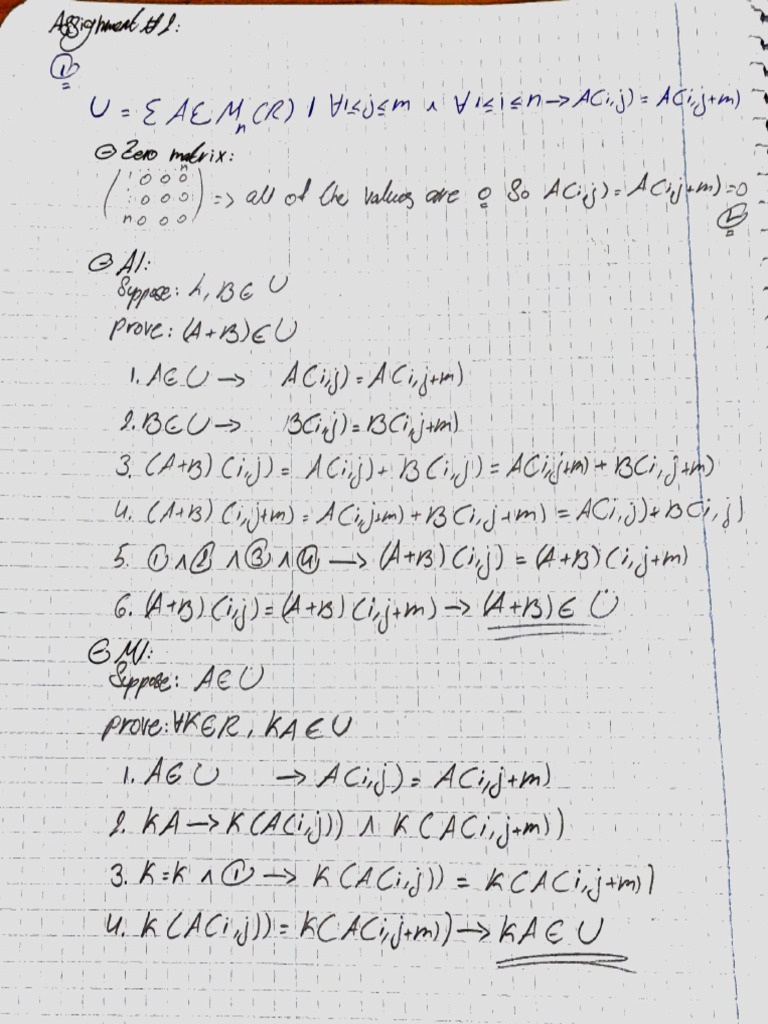 Assignment #1:
①
U = { A ∈ Mn(R) | ∀1≤j≤m ∧ ∀1≤i≤n → A(i,j) = A(i,j+m)
⊖ Zero matrix:
n
1 0 0 0
: 0 0 0 => all of the values are 0 So A(i,j) = A(i,j+m) = 0
n 0 0 0
⊖ A1:
Suppose: A, B ∈ U
Prove: (A+B) ∈ U
1. A ∈ U → A(i,j) = A(i,j+m)
2. B ∈ U → B(i,j) = B(i,j+m)
3. (A+B)(i,j) = A(i,j) + B(i,j) = A(i,j+m) + B(i,j+m)
4. (A+B)(i,j+m) = A(i,j+m) + B(i,j+m) = A(i,j) + B(i,j)
5. ① ∧ ② ∧ ③ ∧ ④ → (A+B)(i,j) = (A+B)(i,j+m)
6. (A+B)(i,j) = (A+B)(i,j+m) → (A+B) ∈ U
⊖ M1:
Suppose: A ∈ U
Prove: ∀K∈R, KA ∈ U
1. A ∈ U → A(i,j) = A(i,j+m)
2. KA → K(A(i,j)) ∧ K(A(i,j+m))
3. K=K ∧ ① → K(A(i,j)) = K(A(i,j+m))
4. K(A(i,j)) = K(A(i,j+m)) → KA ∈ U